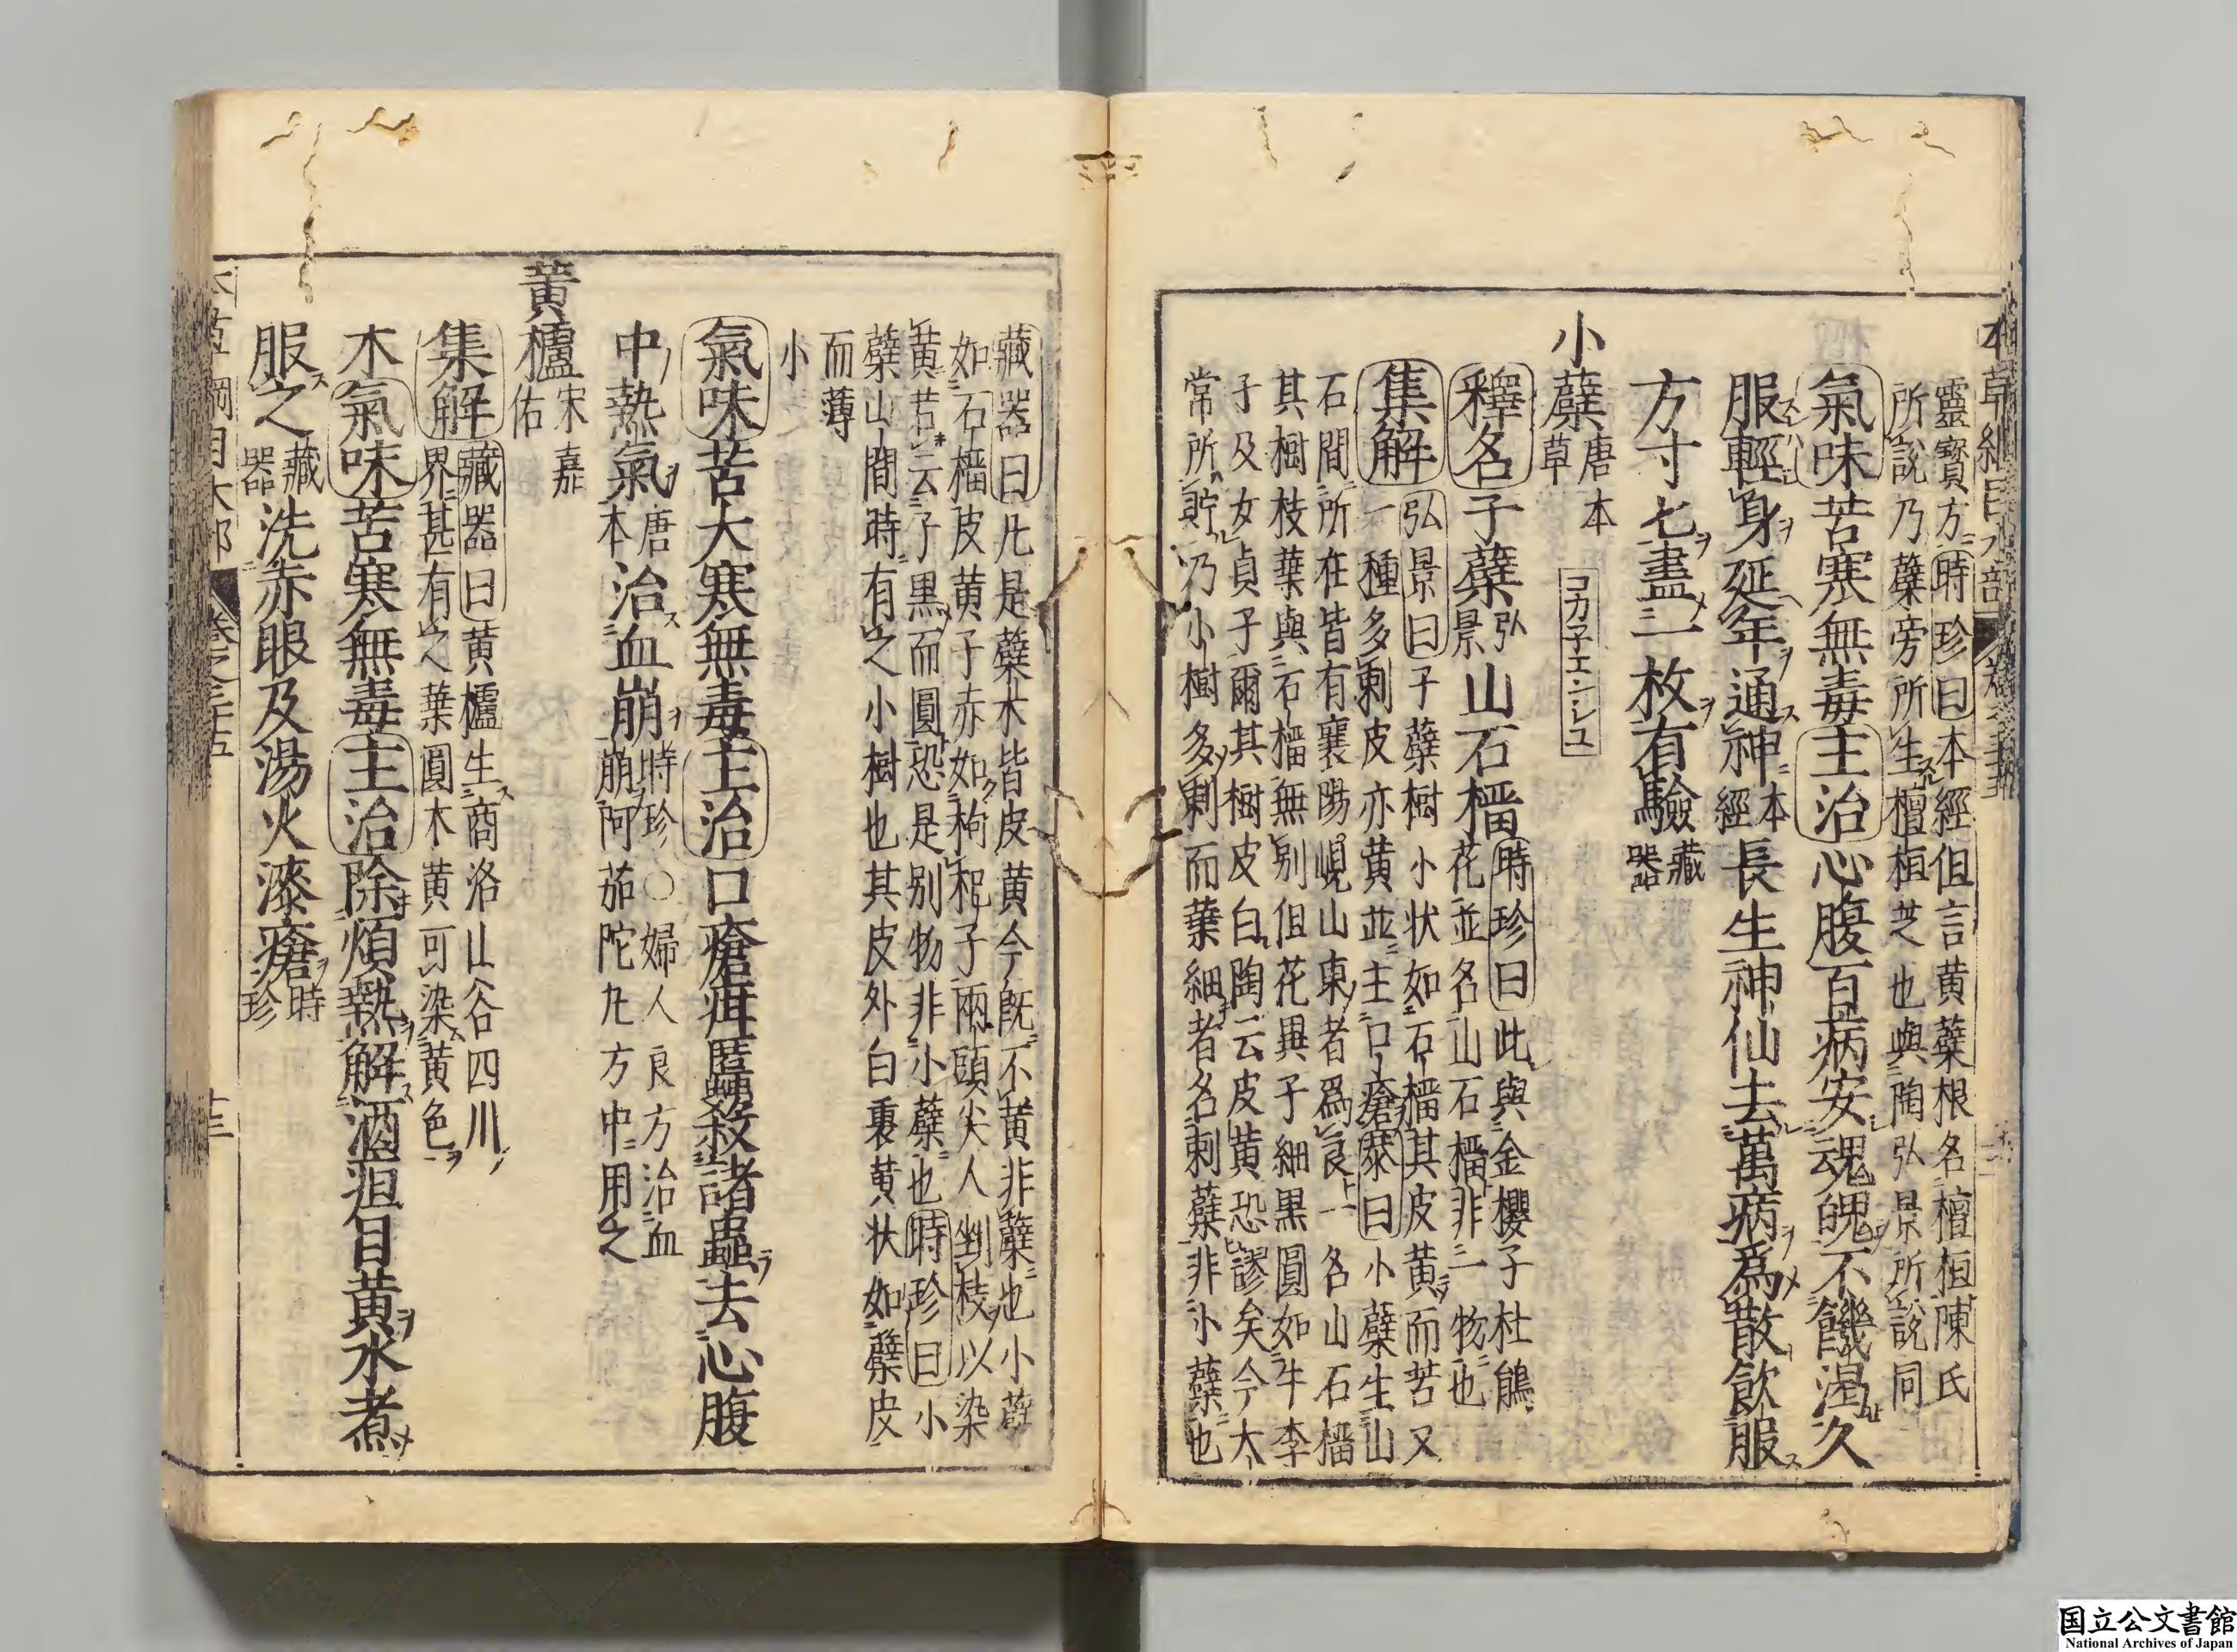 靈寶方時珍曰本經但言黃蘗根名檀桓陳氏
所說乃蘗旁所生檀桓芝也與陶弘景所說同
氣味苦寒無毒主治心腹百病安魂魄不饑渴久
服輕身延年通神本經長生神仙去萬病爲散飲服
方寸七盡一枚有驗藏器
小蘗唐本草
コカ子エンシユ
釋名子蘗弘景山石榴時珍曰此與金櫻子杜鵑
花並名山石榴非一物也
集解弘景曰子蘗樹小状如石榴其皮黃而苦又
一種多刺皮亦黃並主口瘡恭曰小蘗生山
石間所在皆有襄陽峴山東者爲良一名山石榴
其樹枝葉與石榴無別但花異子細黑圓如牛李
子及女貞子爾其樹皮白陶云皮黃恐謬矣今太
常所貯乃小樹多刺而葉細者名刺蘗非小蘗也
藏器曰凡是蘗木皆皮黃今旣不黃非蘗也小蘗
如石榴皮黃子赤如枸杞子兩頭尖人剉枝以染
黃若云子黑而圓恐是別物非小蘗也時珍曰小
蘗山間時有之小樹也其皮外白裏黃状如蘗皮
而薄
小
氣味苦大寒無毒主治口瘡疳䘌殺諸蟲去心腹
中熱氣唐本治血崩時珍○婦人良方治血
崩阿茄陀丸方中用之
黃櫨宋嘉佑
集解藏器曰黃櫨生商洛山谷四川
界甚有之葉圓木黃可染黃色
木氣味苦寒無毒主治除煩熱解酒疸目黃水煮
服之藏器洗赤眼及湯火漆瘡時珍
本草綱目木部 卷之三十五 十三
国立公文書館
National Archives of Japan